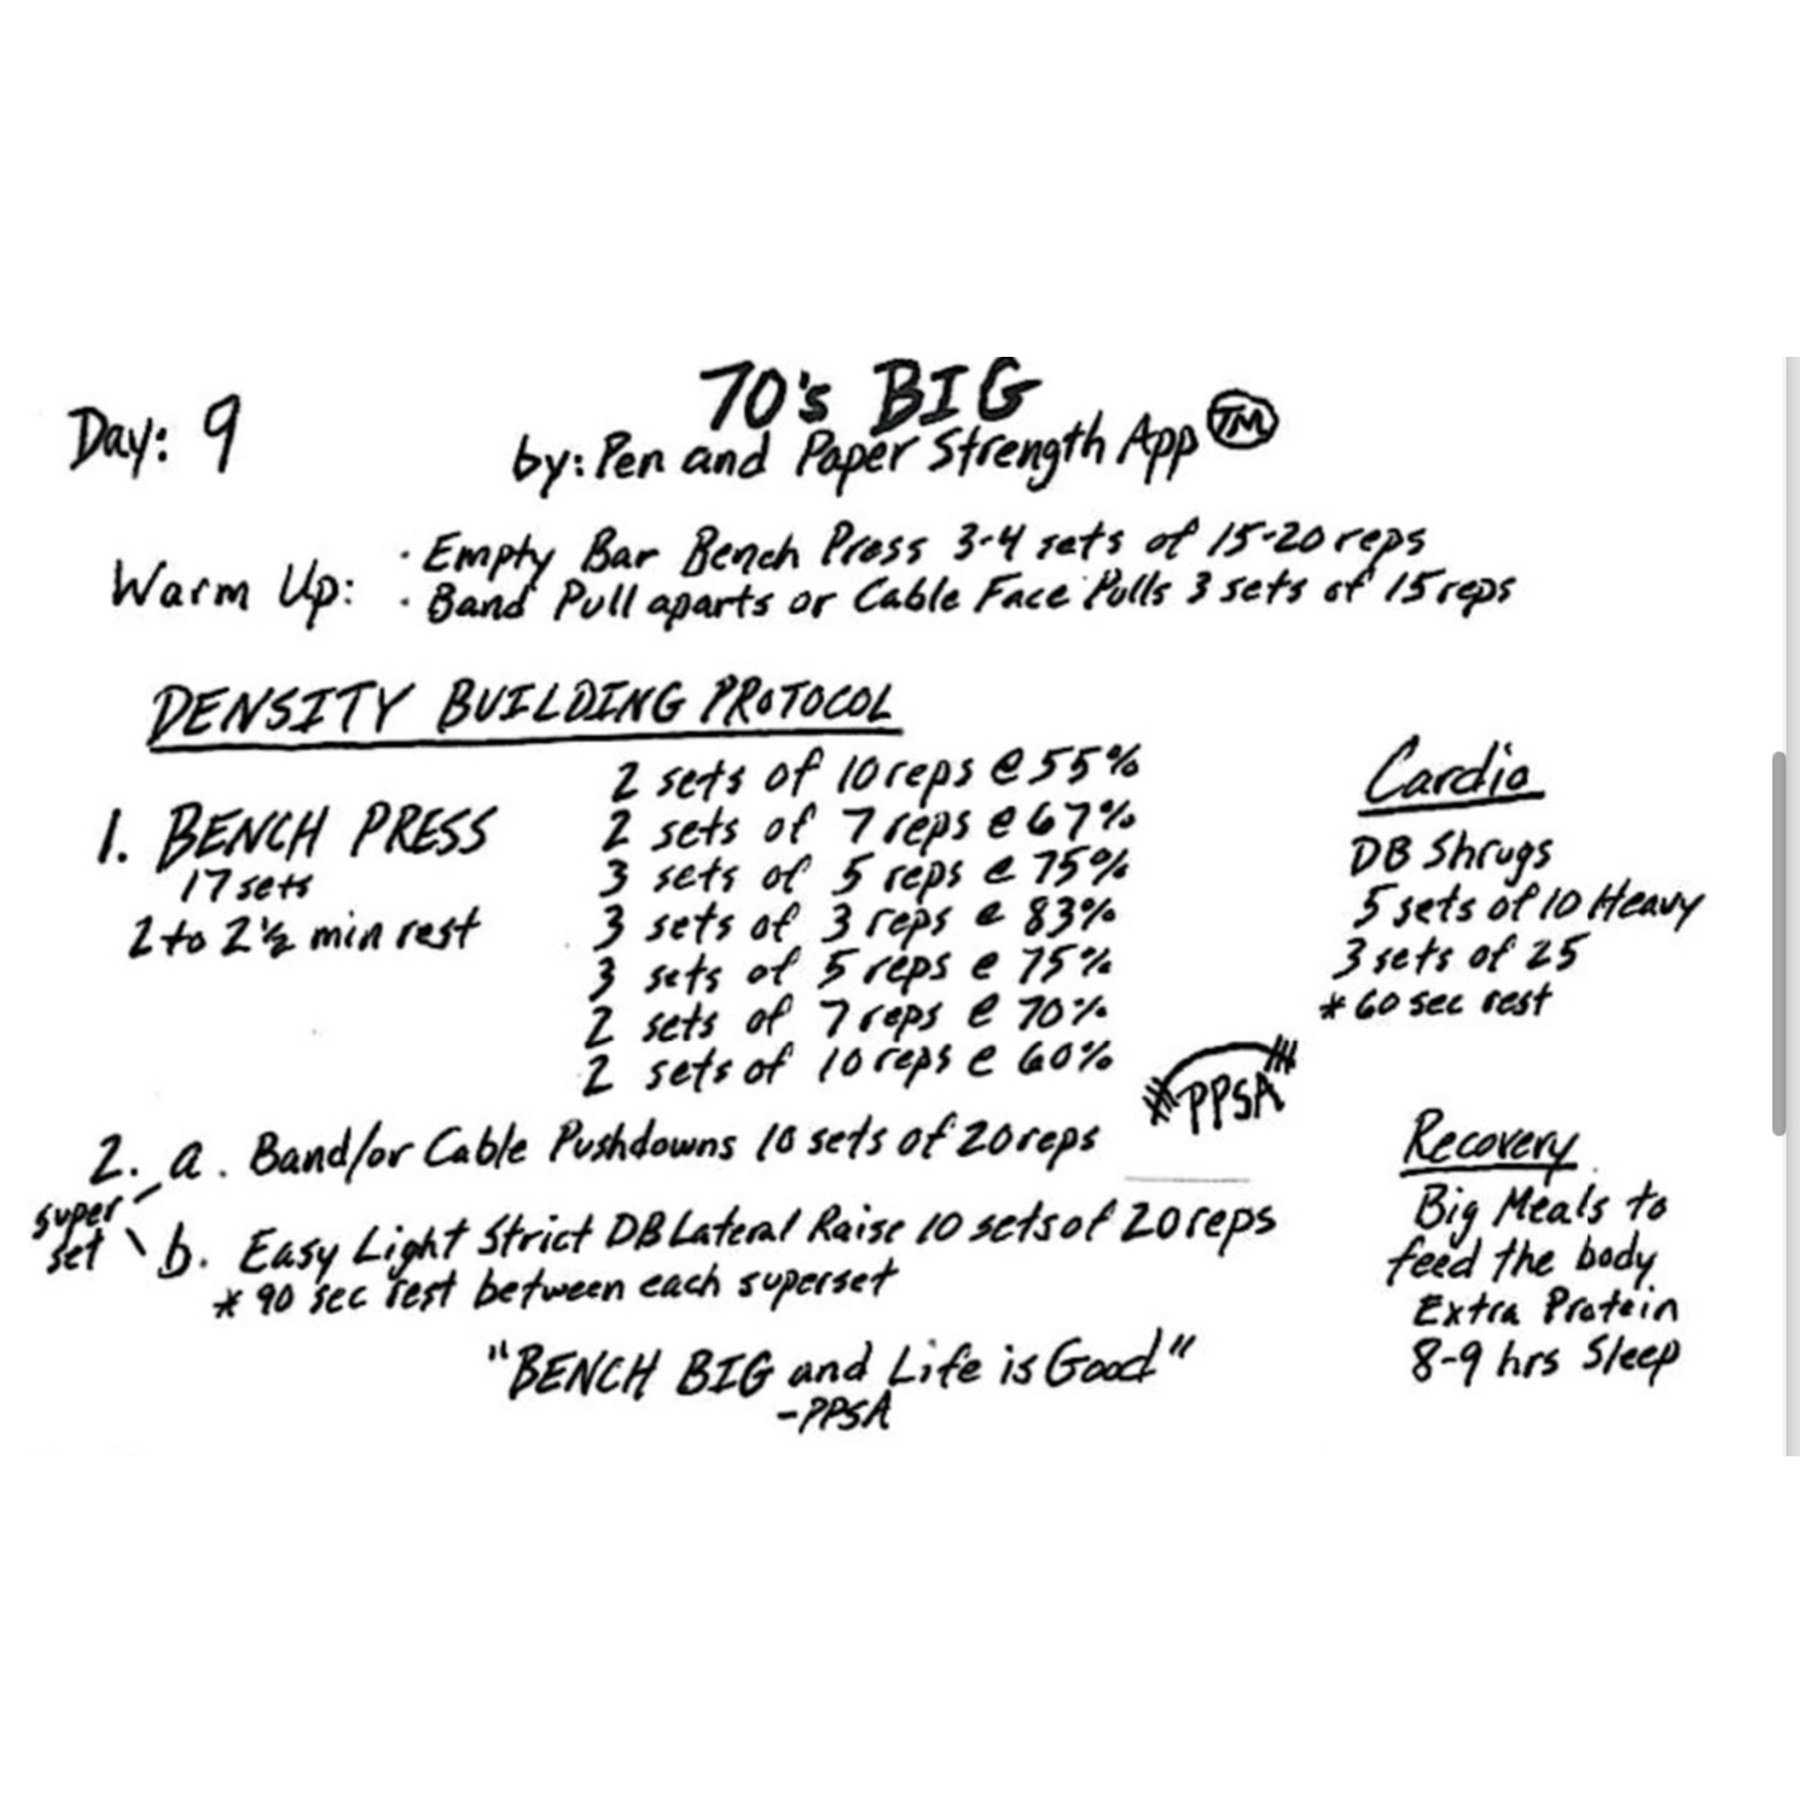 70's BIG
Day: 9
by: Pen and Paper Strength App TM
Warm Up:
· Empty Bar Bench Press 3-4 sets of 15-20 reps
· Band Pull aparts or Cable Face Pulls 3 sets of 15 reps
DENSITY BUILDING PROTOCOL
1. BENCH PRESS
17 sets
2 to 2 1/2 min rest
2 sets of 10 reps @ 55%
2 sets of 7 reps @ 67%
3 sets of 5 reps @ 75%
3 sets of 3 reps @ 83%
3 sets of 5 reps @ 75%
2 sets of 7 reps @ 70%
2 sets of 10 reps @ 60%
Cardio
DB Shrugs
5 sets of 10 Heavy
3 sets of 25
* 60 sec rest
PPSA
2. a. Band/or Cable Pushdowns 10 sets of 20 reps
super
set
b. Easy Light Strict DB Lateral Raise 10 sets of 20 reps
* 90 sec rest between each superset
Recovery
Big Meals to
feed the body
Extra Protein
8-9 hrs Sleep
"BENCH BIG and Life is Good"
-PPSA